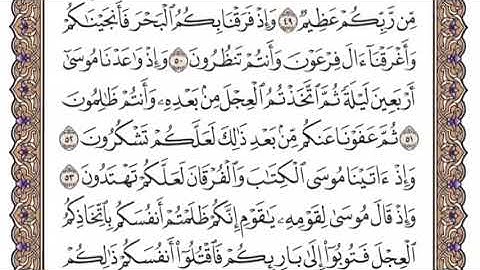 مِّن رَّبِّكُمْ عَظِيمٌ ٤٩ وَإِذْ فَرَقْنَا بِكُمُ ٱلْبَحْرَ فَأَنجَيْنَٰكُمْ
وَأَغْرَقْنَآ ءَالَ فِرْعَوْنَ وَأَنتُمْ تَنظُرُونَ ٥٠ وَإِذْ وَٰعَدْنَا مُوسَىٰٓ
أَرْبَعِينَ لَيْلَةً ثُمَّ ٱتَّخَذْتُمُ ٱلْعِجْلَ مِنۢ بَعْدِهِۦ وَأَنتُمْ ظَٰلِمُونَ
٥١ ثُمَّ عَفَوْنَا عَنكُم مِّنۢ بَعْدِ ذَٰلِكَ لَعَلَّكُمْ تَشْكُرُونَ ٥٢
وَإِذْ ءَاتَيْنَا مُوسَى ٱلْكِتَٰبَ وَٱلْفُرْقَانَ لَعَلَّكُمْ تَهْتَدُونَ ٥٣
وَإِذْ قَالَ مُوسَىٰ لِقَوْمِهِۦ يَٰقَوْمِ إِنَّكُمْ ظَلَمْتُمْ أَنفُسَكُم بِٱتِّخَاذِكُمُ
ٱلْعِجْلَ فَتُوبُوٓا۟ إِلَىٰ بَارِئِكُمْ فَٱقْتُلُوٓا۟ أَنفُسَكُمْ ذَٰلِكُمْ